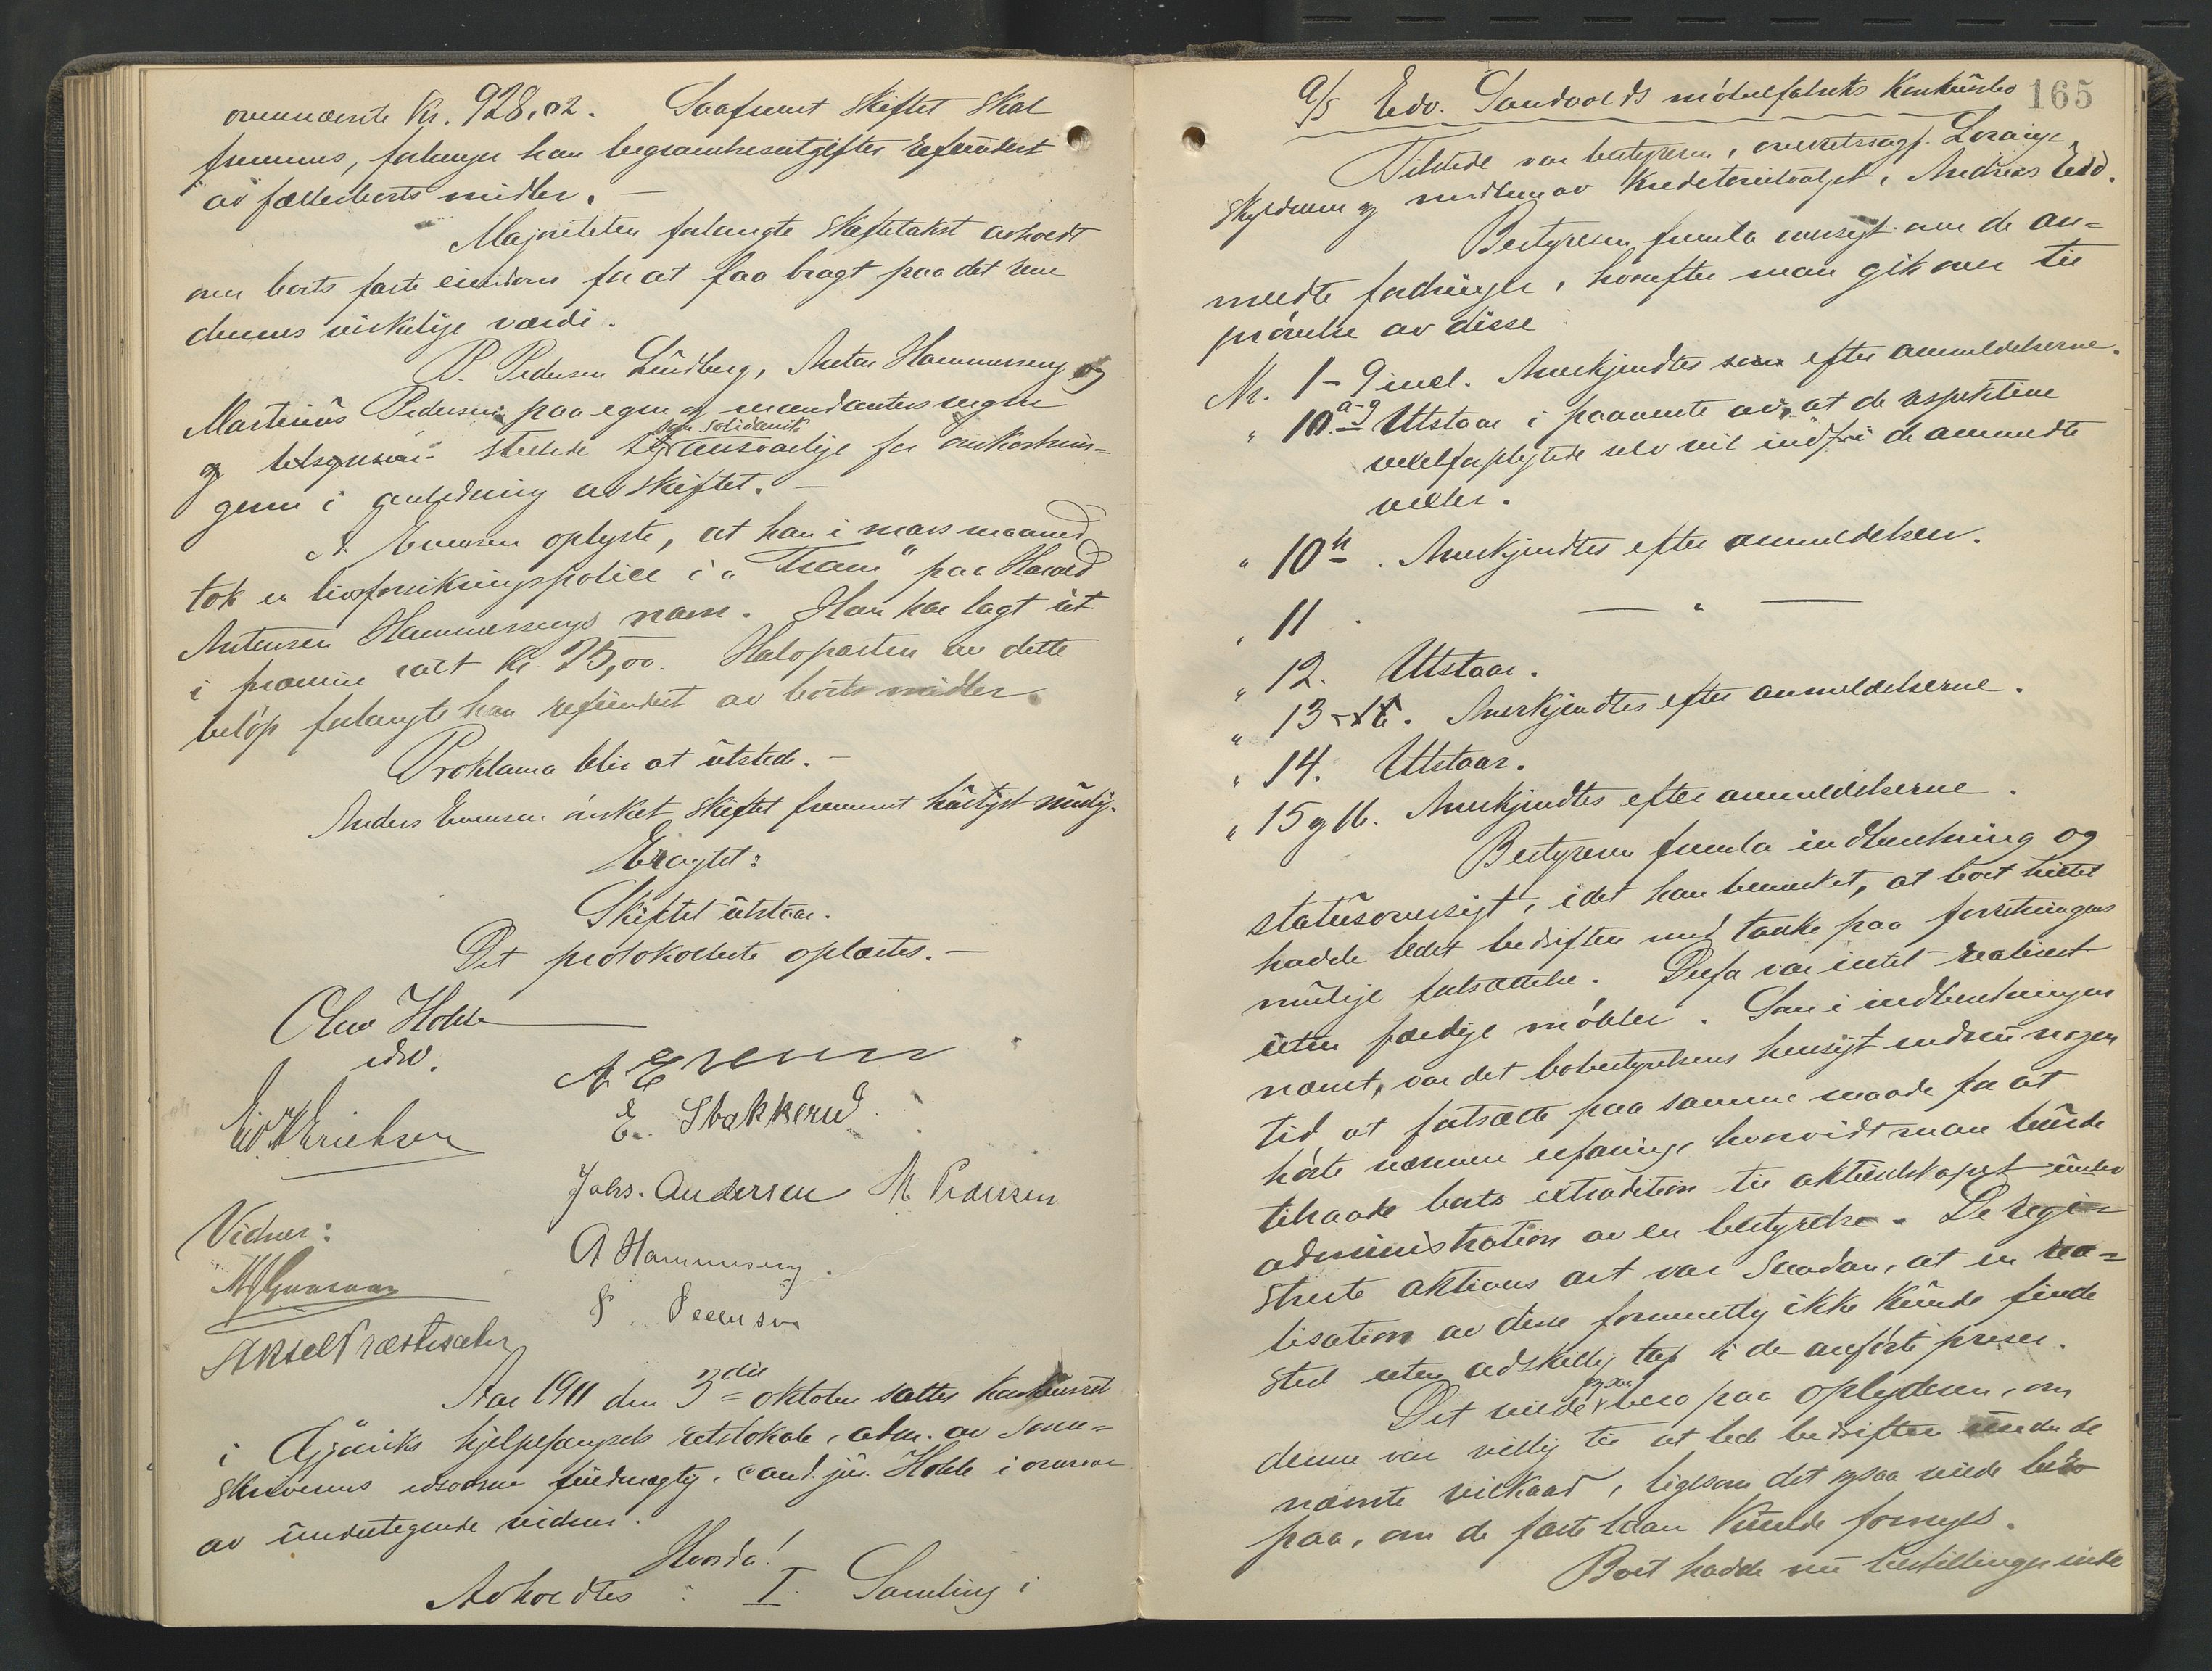 ovennævnte Kr. 928,02. Saafremt skiftet skal
fremmes, forlanger han begravelsesutgifter refundert
av fællesboets midler. —
Majoriteten forlangte skiftetakst avholdt
over boets faste eiendom for at faa bragt paa det rene
dennes virkelige værdi.
P. Pedersen Lundberg, Anton Hammerseng og
Martinus Pedersen paa egne og mandanters vegne
som solidarisk
og stillede sig ansvarlige for omkostnin-
gerne i anledning av skiftet. —
A. Evensen oplyste, at han i mars maaned
tok en livsforsikringspolice i "Fram" paa Harald
Antonsen Hammersengs navn. Han har lagt ut
i præmie ialt kr. 75,00. Halvparten av dette
beløp forlangte han refundert av boets midler.
Proklama blir at utstede. —
Anders Evensen ønsket skiftet fremmet hurtigst mulig.
Eragtet:
Skiftet utstaar.
Det protokollerte oplæstes. —
Olav Holde
edsv.
A Evensen
E. Stakkerud
Johs. Andersen M Pedersen
Vidner:
A Hammerseng.
P. Pedersen
Aksel Præstesæter
Aar 1911 den 3die oktober sattes konkursret
i Gjøviks hjelpefængsels retslokale, adm. av soren-
skriverens edsvorne fuldmægtig, cand. jur. Holde i overvær
av undertegnede vidner.
Hvorda!
Avholdtes: I. Samling i
165
A/S Edv. Sandvolds møbelfabriks konkursbo
Tilstede var bestyreren, overretssagf. Lorange,
skyldneren og medlem av kreditorutvalget, Andreas Lund.
Bestyreren fremla oversigt over de an-
meldte fordringer, hvorefter man gik over til
prøvelse av disse:
Nr. 1-9 incl. Anerkjendtes efter anmeldelserne.
" 10 a-g Utstaar i paavente av, at de respektive
vexelforpligtede selv vil indfri de anmeldte
vexler.
" 10 h. Anerkjendtes efter anmeldelsen.
" 11. — " —
" 12. Utstaar.
" 13. Anerkjendtes efter anmeldelserne.
" 14. Utstaar.
" 15 og 16. Anerkjendtes efter anmeldelserne.
Bestyreren fremla indberetning og
statusoversigt, idet han bemerket, at boet hittil
hadde ledet bedriften med tanke paa forretningens
mulige fortsættelse. Derfor var intet realisert
uten færdige møbler. Som i indberetningen
nævnt, var det bobestyrelsens hensigt endnu nogen
tid at fortsætte paa samme maade for at
høste nærmere erfaring, hvorvidt man burde
tilraade boets extradition til aktieselskapet under
administration av en bestyrelse. De regi-
strerte aktivers art var saadan, at en rea-
lisation av disse formentlig ikke kunde finde
sted uten adskillig tap i de anførte priser.
ogsaa
Det vilde bero paa oplyderen, om
denne var villig til at lede bedriften under de
nævnte vilkaar, ligesom det ogsaa vilde bero
paa, om de faste laan kunde fornyes.
Boet hadde nu bestillinger inde